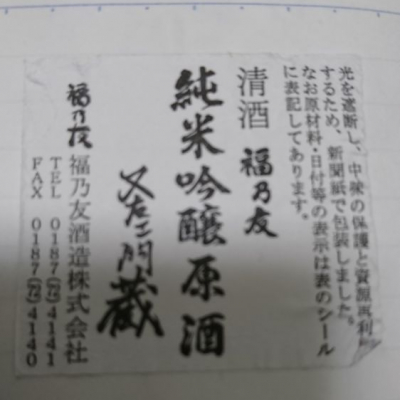 光を遮断し、中棟の保護と資源再利
するため、新聞紙で包装しました。
なお原材料・日付等の表示は表のシール
に表記してあります。
清酒 福乃友
純米吟醸原酒
又左エ門蔵
福乃友 福乃友酒造株式会社
TEL 0187(72)4141
FAX 0187(72)4140